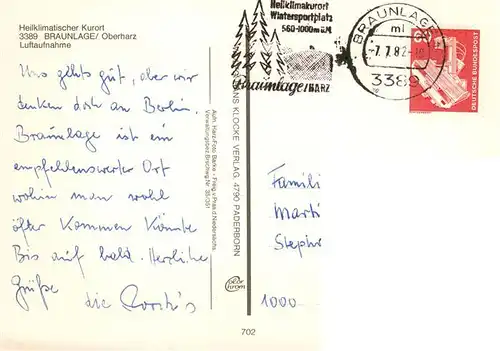 Heilklimatischer Kurort
3389 BRAUNLAGE/ Oberharz
Luftaufnahme
Uns gehts gut, aber wir
denken doch an Berlin.
Braunlage ist ein
empfehlenswerter Ort
wohin man wohl
öfter kommen könnte
Bis auf bald. Herzliche
Grüße
die
Aufn. Harz-Foto Barke - Freig. v. Präs. d. Nieders.
Verwaltungsbez. Brschwg. Nr.
HANS KLOCKE VERLAG, 4790 PADERBORN
color
chrom
702
Heilklimakurort
Wintersportplatz
560-1000m ü.M.
Braunlage/HARZ
BRAUNLAGE
ml
-7.7.82
3389
DEUTSCHE BUNDESPOST
Famili
Marti
Steph
1000